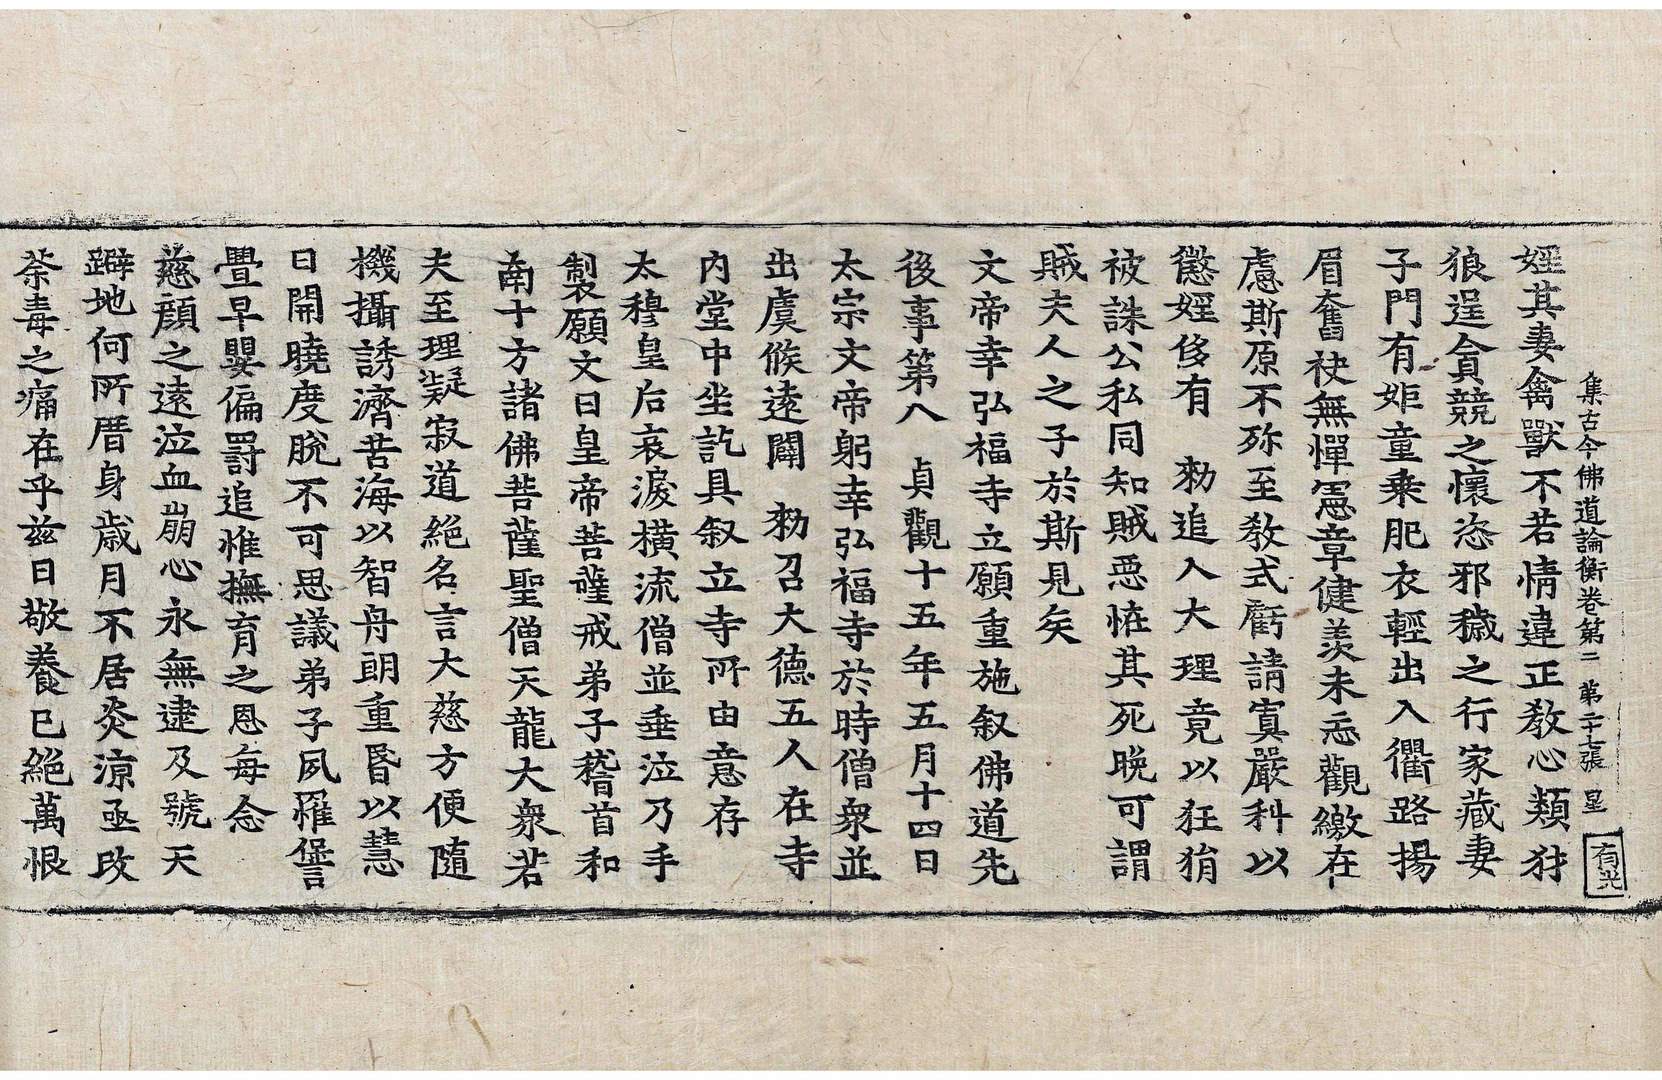 集古今佛道論衡卷第二 第二十七張 星
有光
婬其妻禽獸不若情違正教心類犲
狼逞貪競之懷恣邪穢之行家藏妻
子門有姫童乘肥衣輕出入衢路揚
眉奮袂無憚憲章健羨未忘觀繳在
慮斯原不殄至教式虧請寘嚴科以
懲婬侈有 勑追入大理竟以狂狷
被誅公私同知賊惡恠其死晚可謂
賊夫人之子於斯見矣
文帝幸弘福寺立願重施叙佛道先
後事第八 貞觀十五年五月十四日
太宗文帝躬幸弘福寺於時僧衆並
出虞候遠闢 勑召大德五人在寺
內堂中坐訖具叙立寺所由意存
太穆皇后哀淚橫流僧並垂泣乃手
製願文曰皇帝菩薩戒弟子稽首和
南十方諸佛菩薩聖僧天龍大衆若
夫至理凝寂道絕名言大慈方便隨
機攝誘濟苦海以智舟朗重昏以慧
日開曉度脫不可思議弟子夙罹愆
舋早嬰偏罰追惟撫育之恩每念
慈顏之遠泣血崩心永無逮及號天
躃地何所厝身歲月不居炎涼亟改
荼毒之痛在乎兹日敬養已絕萬恨